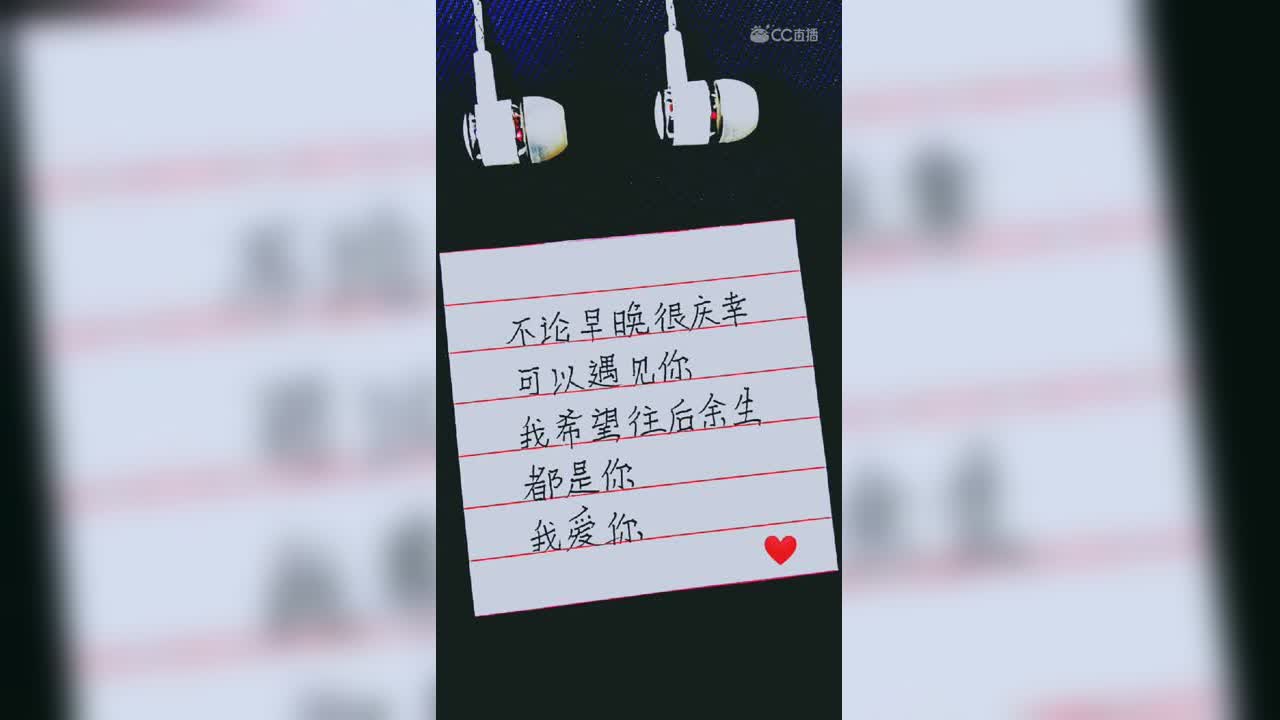 CC直播
不论早晚很庆幸
可以遇见你
我希望往后余生
都是你
我爱你